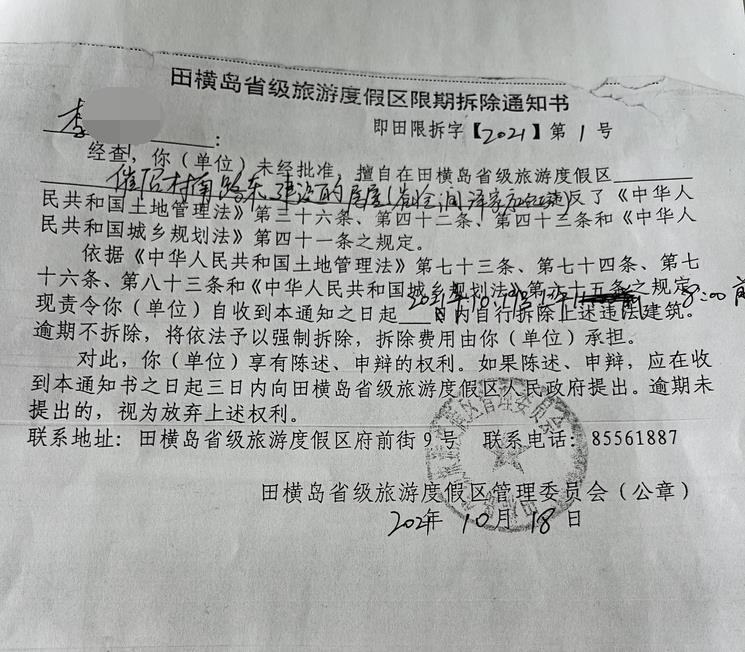 田横岛省级旅游度假区限期拆除通知书
即田限拆字【2021】第 1 号
李 :
经查，你（单位）未经批准，擅自在田横岛省级旅游度假区
村南路东建设的房屋 反了《中华人
民共和国土地管理法》第三十六条、第四十二条、第四十三条和《中华人
民共和国城乡规划法》第四十一条之规定。
依据《中华人民共和国土地管理法》第七十三条、第七十四条、第七
十六条、第八十三条和《中华人民共和国城乡规划法》第六十五条之规定
2021年10月 8:00前
现责令你（单位）自收到本通知之日起 日内自行拆除上述违法建筑。
逾期不拆除，将依法予以强制拆除，拆除费用由你（单位）承担。
对此，你（单位）享有陈述、申辩的权利。如果陈述、申辩，应在收
到本通知书之日起三日内向田横岛省级旅游度假区人民政府提出。逾期未
提出的，视为放弃上述权利。
联系地址：田横岛省级旅游度假区府前街 9 号 联系电话：85561887
田横岛省级旅游度假区管理委员会（公章）
202年 10 月 18 日